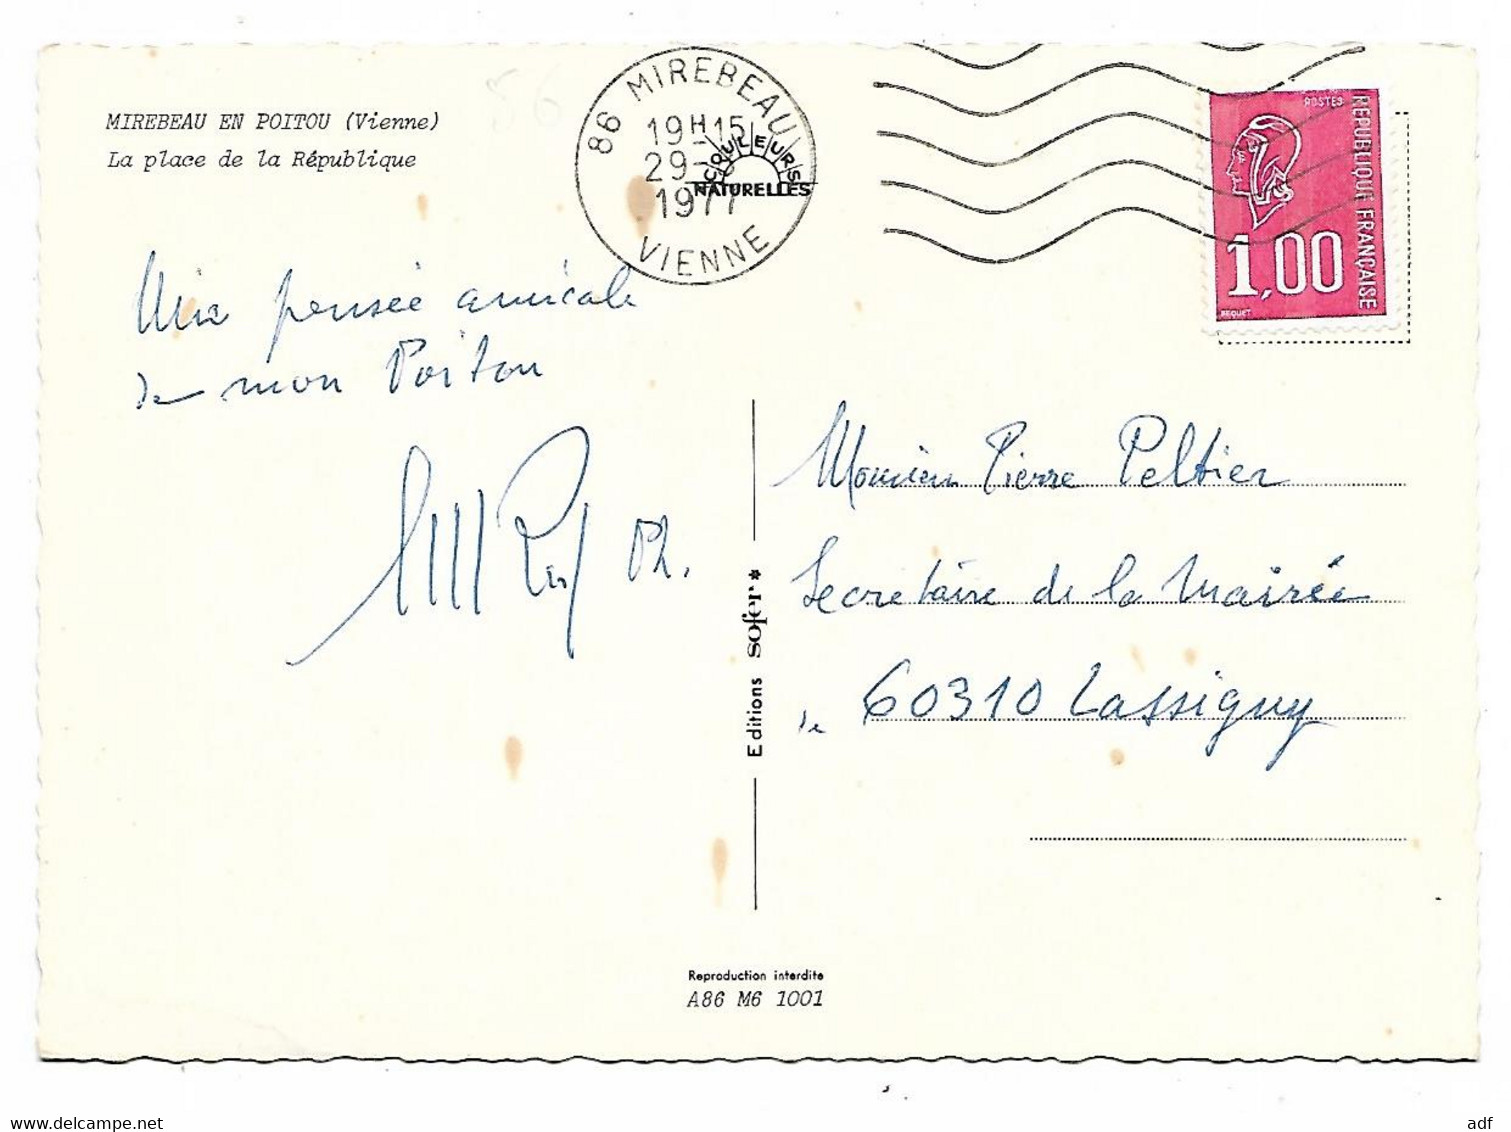 MIREBEAU EN POITOU (Vienne)
La place de la République
86 MIREBEAU
19H15
29-
1977
VIENNE
COULEURS
NATURELLES
POSTES
REPUBLIQUE FRANÇAISE
1,00
BEQUET
Une pensée amicale
de mon Poitou
Ph.
Monsieur Pierre Peltier
Secretaire de la Mairie
de 60310 Lassigny
Editions sofer*
Reproduction interdite
A86 M6 1001
www.delcampe.net
adf